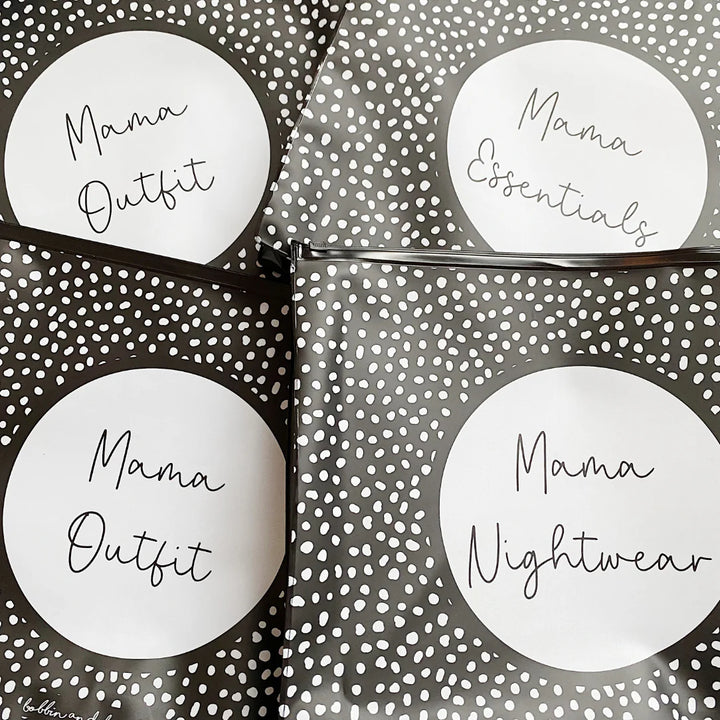 Mama
Outfit
Mama
Essentials
Mama
Outfit
Mama
Nightwear
bobbin and